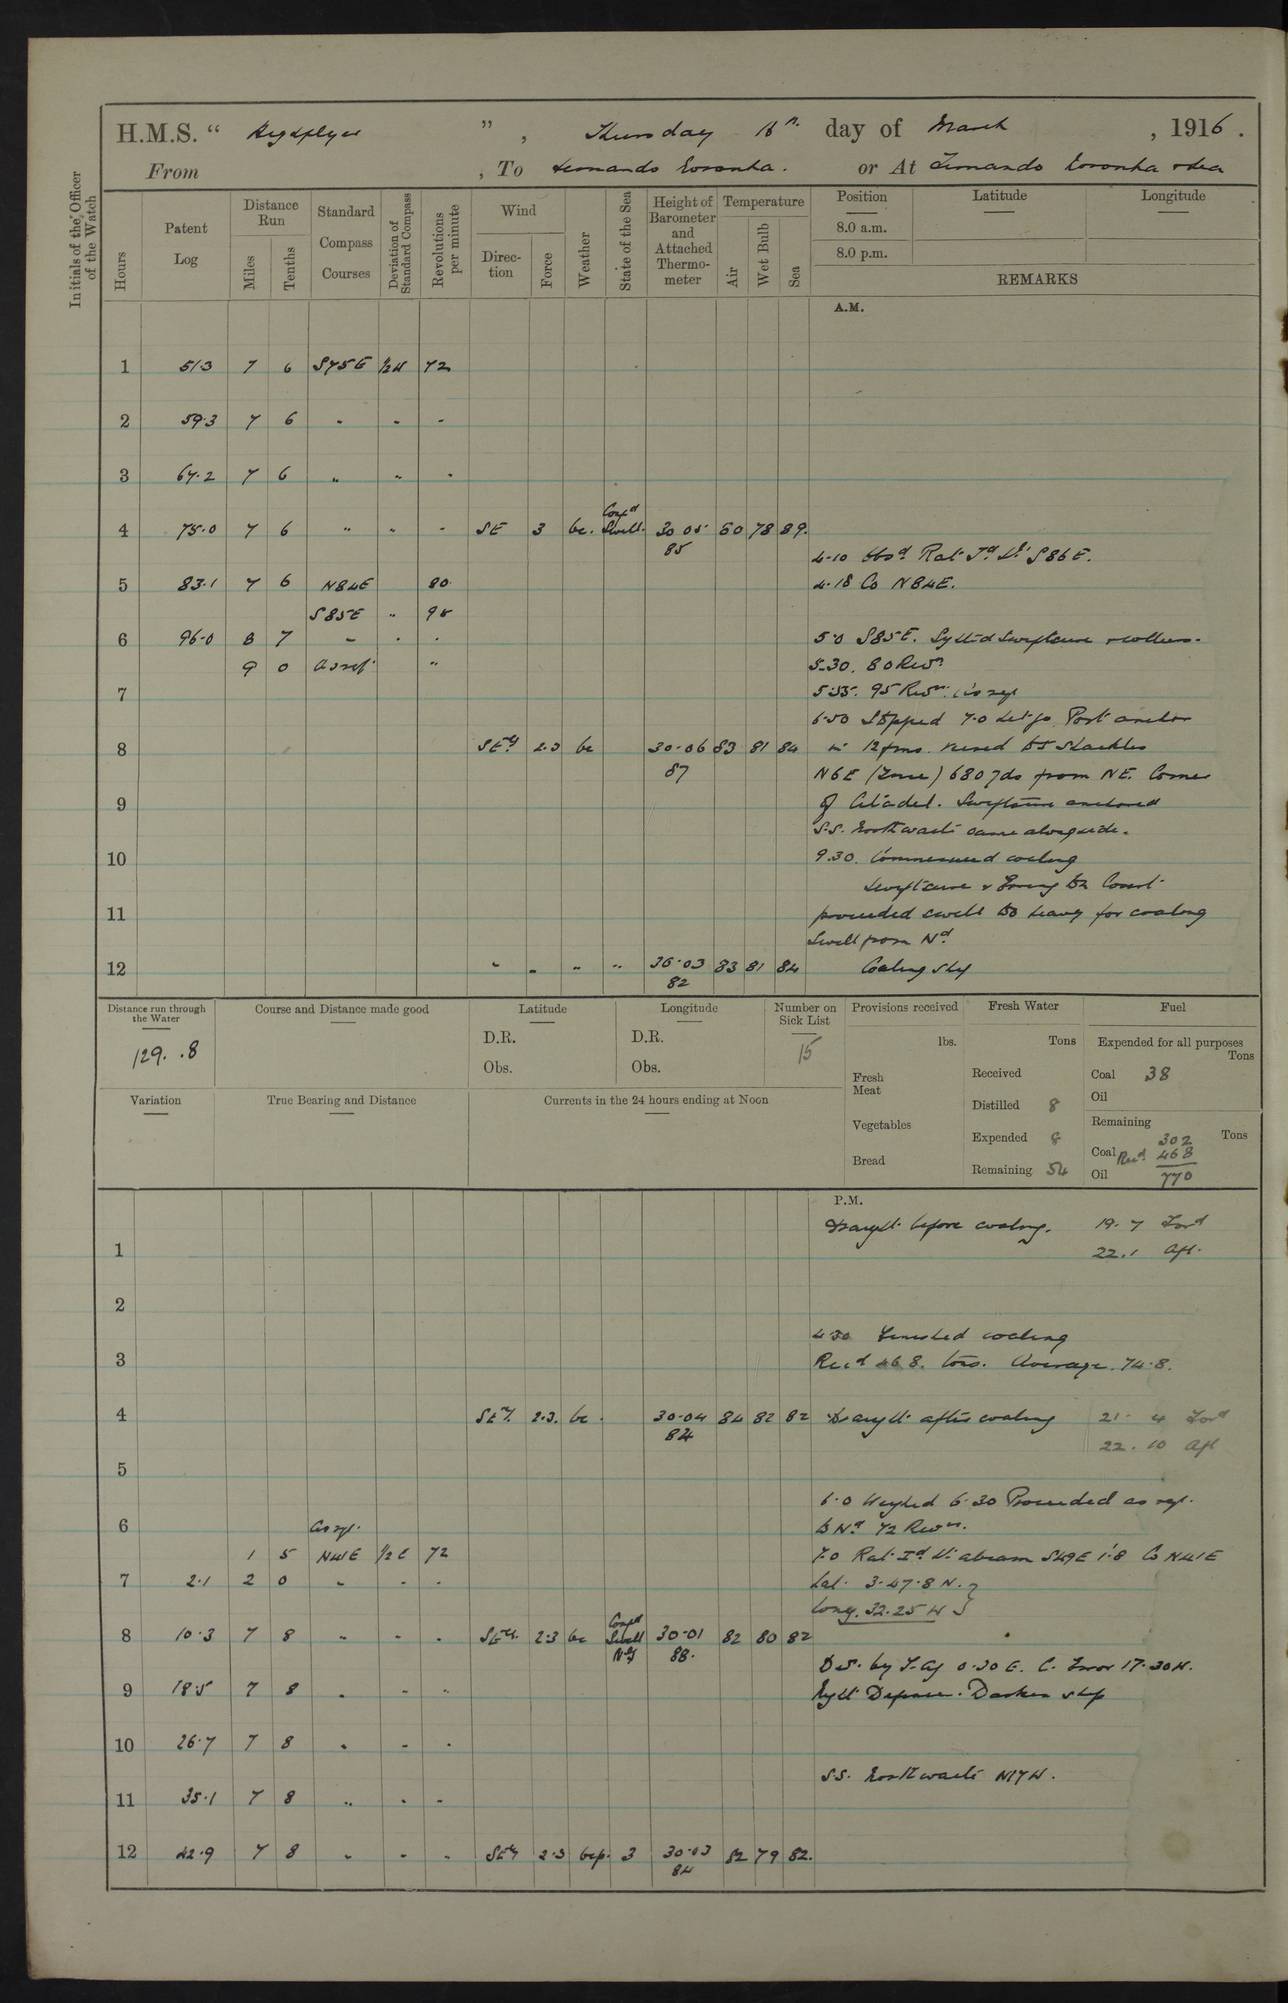 H.M.S. " Highflyer ", Thursday 16th day of March, 1916.
From , To Fernando Noronha. or At Fernando Noronha & Sea
Initials of the Officer of the Watch
Hours
Patent Log
Distance Run
Miles
Tenths
Standard Compass Courses
Deviation of Standard Compass
Revolutions per minute
Wind
Direction
Force
Weather
State of the Sea
Height of Barometer and Attached Thermometer
Temperature
Air
Wet Bulb
Sea
Position
8.0 a.m.
8.0 p.m.
Latitude
Longitude
REMARKS
A.M.
1 51.3 7 6 S75E ½W 72
2 59.3 7 6 " " "
3 67.2 7 6 " " "
4 75.0 7 6 " " " SE 3 bc. Conf'd Swell. 30.05 80 78 82.
85
4.10 Obsd. Rat Id. Lt. S86E.
5 83.1 7 6 N84E 80 4.18 Co N84E.
S85E " 95
6 96.0 8 7 " " " 5.0 S85E. Sighted Swiftsure & colliers.
9 0 As req. " 5.30. 80 Revns
7 5.35. 95 Revns. Co's req
6.50 Stopped 7.0 Let go Port anchor
8 SEly 2.3 bc 30.06 83 81 84 in 12 fms. veered to 5 shackles
87 N6E (True) 680 yds from NE. Corner
9 of Citadel. Swiftsure anchored
S.S. came alongside.
10 9.30. Commenced coaling
Swiftsure &
11 proceeded swell too heavy for coaling
Swell from Nd.
12 " " " " 30.03 83 81 84 Coaling ship
82
Distance run through the Water
129. .8
Course and Distance made good
Latitude
D.R.
Obs.
Longitude
D.R.
Obs.
Number on Sick List
15
Provisions received
lbs.
Fresh Meat
Vegetables
Bread
Fresh Water
Tons
Received
Distilled 8
Expended 8
Remaining 54
Fuel
Expended for all purposes
Tons
Coal 38
Oil
Remaining
Tons
302
Coal Recd. 468
Oil 770
Variation
True Bearing and Distance
Currents in the 24 hours ending at Noon
P.M.
Draught before coaling. 19.7 Ford
1 22.1 Aft.
2
4.30 Finished coaling
3 Recd 468. tons. Average. 74.8.
4 SEly. 2.3. bc. 30.04 84 82 82 Draught after coaling 21. 4 Ford
84 22. 10 Aft
5
6.0 Weighed 6.30 Proceeded as req.
6 As req. to Nd 72 Revns.
1 5 N41E ½E 72 7.0 Rat Id Lt abeam S49E 1'.8 Co N41E
7 2.1 2 0 " " " Lat. 3.47.8 N.
Long. 32.25 W
8 10.3 7 8 " " " SEly. 2.3 bc Conf'd Swell Nly 30.01 82 80 82
88.
Dev. by 0.30E. C. Error 17.30W.
9 18.5 7 8 " " " Night Defence. Darken ship
10 26.7 7 8 " " "
S.S. N17W.
11 35.1 7 8 " " "
12 42.9 7 8 " " " SEly 2.3 bcp. 3 30.03 82 79 82.
84